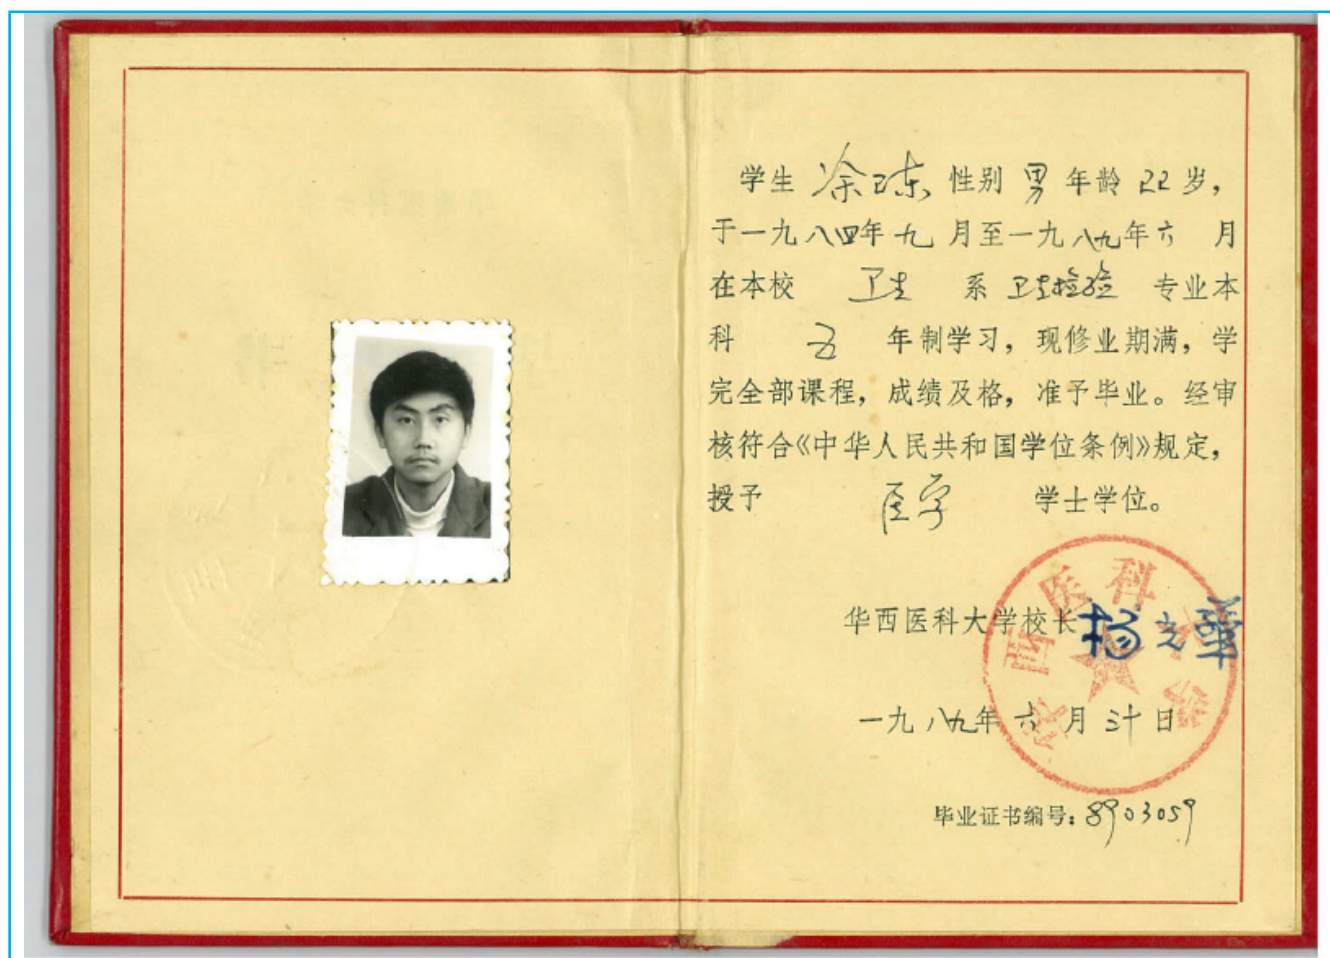 学生 性别 男 年龄 22 岁，
于一九八四年九月至一九八九年六月
在本校 卫生 系 卫生检验 专业本
科 五 年制学习，现修业期满，学
完全部课程，成绩及格，准予毕业。经审
核符合《中华人民共和国学位条例》规定，
授予 医学 学士学位。
华西医科大学校长 杨光華
一九八九年六月三十日
华西医科大学
毕业证书编号：8903059